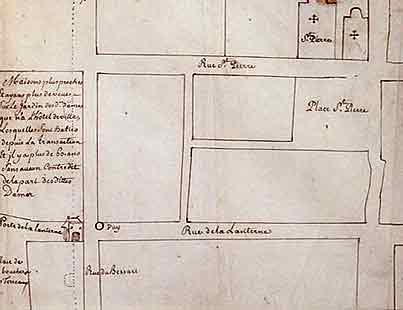 Ste Pierre
Rue St. Pierre
Maisons plus proches
Place St. Pierre
et ayans plus de veues
sur le Jardin des d. Dames
que n'a L'hotel de ville
Lesquelles sont baties
depuis la transaction
et il y a plus de 60 ans
sans aucun Contredit
de la part des dites
Dames
Porte de la lanterne
Puy
Rue de la Lanterne
Rue du Bessart